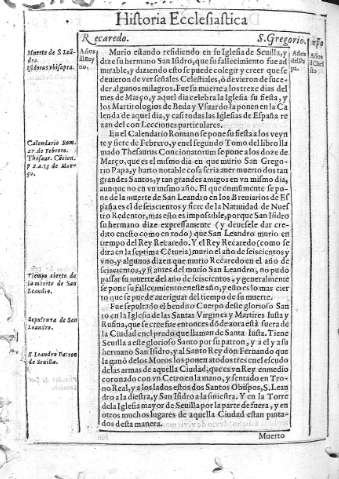 Historia Ecclesiastica
Recaredo. S. Gregorio.
Muerte de S. Lean
dro.
Murio estando residiendo en su Iglesia de Seuilla, y di
ze su hermano San Isidro, que su fallecimiento fue ad
mirable, y dazendo esto se puede colegir y creer que se
dieron de ver señales Celestiales, ò deuieron de suce-
der algunos milagros. Fue su muerte a los treze dias del
mes de Março, y aquel dia celebra la Iglesia su fiesta, y
los Martirologios de Beda y Vsuardo la ponen en la Ca
lenda de aquel dia, y casi todas las Iglesias de España re
zan del con Lecciones particulares.
Calendario Rom.
27. de Febrero.
En el Calendario Romano se pone su fiesta a los veyn
te y siete de Febrero, y en el segundo Tomo del libro lla
mado Thesaurus Concionatorum se pone a los doze de
Março, que es el mismo dia en que murio San Grego-
rio Papa, y harto notable cosa seria auer muerto dos tan
grandes Santos, y tan grandes amigos en vn mismo dia,
aunque no en vn mismo año. El que comunmente se po
ne de la muerte de San Leandro en los Breuiarios de Es
paña es el de seiscientos y siete de la Natiuidad de Nues
tro Redentor, mas esto es imposible, porque San Isidro
su hermano dize expressamente (y deuesele dar cre-
dito en esto como en todo) que San Leandro murio en
tiempo del Rey Recaredo. Y el Rey Recaredo (como se
dira en la septima Céturia) murio el año de seiscientos y
vno, y algunos dizen que murio Recaredo en el año de
seiscientos, y si antes del murio San Leandro, no pudo
passar su muerte del año de seiscientos, y generalmente
se pone su fallecimiento en este año, y esto es lo mas cier
to que se puede aueriguar del tiempo de su muerte.
Tiempo cierto de
la muerte de San
Leandro.
Sepultura de San
Leandro.
Fue sepultado el bendito Cuerpo deste glorioso San-
to en la Iglesia de las Santas Virgines y Martires Iusta y
Rufina, que se cree fue entonces dõde aora està fuera de
la Ciudad en el prado que llaman de Santa Iusta. Tiene
S. Leandro Patron
de Seuilla.
Seuilla a este glorioso Santo por su patron, y a el y a su
hermano San Isidro, y al Santo Rey don Fernando que
la ganò de los Moros los ponen a todos tres en el escudo
de las armas de aquella Ciudad, que es vn Rey en medio
coronado con vn Cetro en la mano, y sentado en Trono
Real, y a los lados estos dos Santos Obispos, S. Lean
dro a la diestra, y San Isidro a la siniestra. Y en la Torre
de la Iglesia mayor de Seuilla por la parte de fuera, y en
otros muchos lugares de aquella Ciudad estan pinta-
dos desta manera.
Muerto